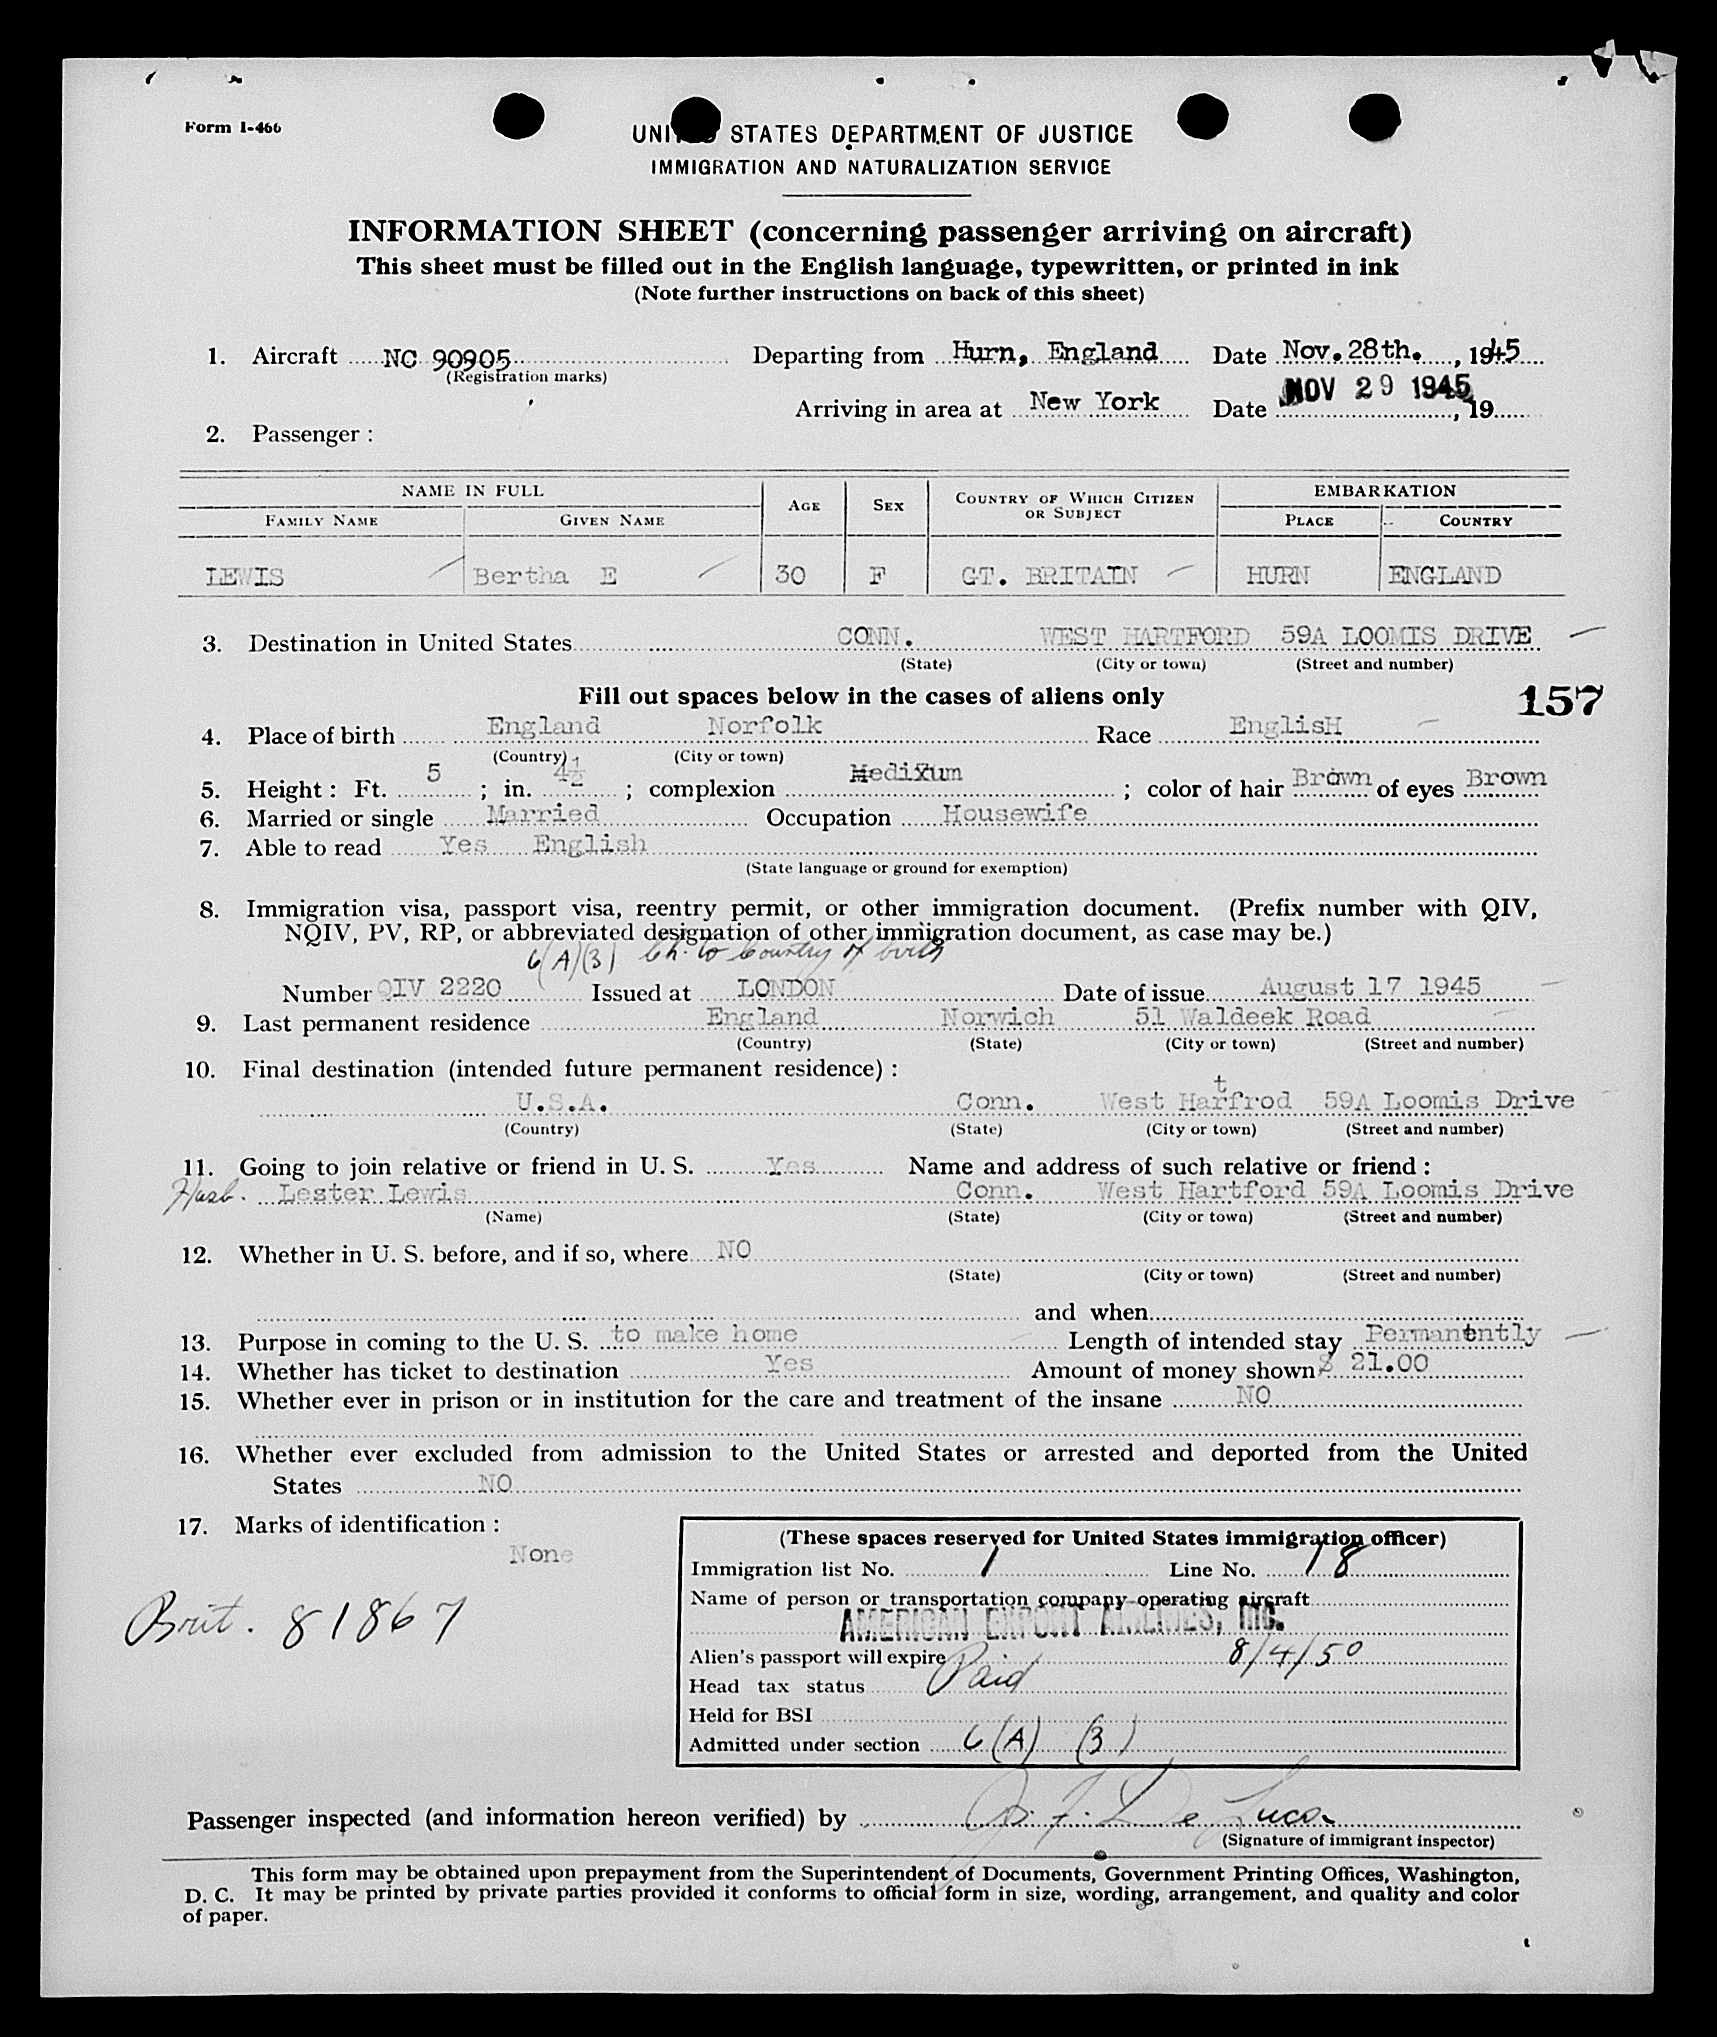 Form I-466
UNITED STATES DEPARTMENT OF JUSTICE
IMMIGRATION AND NATURALIZATION SERVICE
INFORMATION SHEET (concerning passenger arriving on aircraft)
This sheet must be filled out in the English language, typewritten, or printed in ink
(Note further instructions on back of this sheet)
1. Aircraft NC 90905 Departing from Hurn, England Date Nov. 28th. , 1945
(Registration marks)
Arriving in area at New York Date NOV 29 1945, 19
2. Passenger :
NAME IN FULL AGE SEX COUNTRY OF WHICH CITIZEN OR SUBJECT EMBARKATION
FAMILY NAME GIVEN NAME PLACE COUNTRY
LEWIS Bertha E 30 F GT. BRITAIN HURN ENGLAND
3. Destination in United States CONN. WEST HARTFORD 59A LOOMIS DRIVE
(State) (City or town) (Street and number)
Fill out spaces below in the cases of aliens only 157
4. Place of birth England Norfolk Race EnglisH
(Country) (City or town)
5. Height : Ft. 5 ; in. 4½ ; complexion Medium ; color of hair Brown of eyes Brown
6. Married or single Married Occupation Housewife
7. Able to read Yes English
(State language or ground for exemption)
8. Immigration visa, passport visa, reentry permit, or other immigration document. (Prefix number with QIV,
NQIV, PV, RP, or abbreviated designation of other immigration document, as case may be.)
6(A)(3) Ch. to Country of birth
Number QIV 2220 Issued at LONDON Date of issue August 17 1945
9. Last permanent residence England Norwich 51 Waldeek Road
(Country) (State) (City or town) (Street and number)
10. Final destination (intended future permanent residence) :
t
U.S.A. Conn. West Harfrod 59A Loomis Drive
(Country) (State) (City or town) (Street and number)
11. Going to join relative or friend in U. S. Yes Name and address of such relative or friend :
Husb. Lester Lewis Conn. West Hartford 59A Loomis Drive
(Name) (State) (City or town) (Street and number)
12. Whether in U. S. before, and if so, where NO
(State) (City or town) (Street and number)
and when
13. Purpose in coming to the U. S. to make home Length of intended stay Permanently
14. Whether has ticket to destination Yes Amount of money shown $ 21.00
15. Whether ever in prison or in institution for the care and treatment of the insane NO
16. Whether ever excluded from admission to the United States or arrested and deported from the United
States NO
17. Marks of identification :
None
Brit. 81867
(These spaces reserved for United States immigration officer)
Immigration list No. 1 Line No. 18
Name of person or transportation company operating aircraft
AMERICAN EXPORT AIRLINES, INC.
Alien's passport will expire 8/4/50
Head tax status Paid
Held for BSI
Admitted under section 6(A) (3)
Passenger inspected (and information hereon verified) by J. F. De Luca
(Signature of immigrant inspector)
This form may be obtained upon prepayment from the Superintendent of Documents, Government Printing Offices, Washington,
D. C. It may be printed by private parties provided it conforms to official form in size, wording, arrangement, and quality and color
of paper.